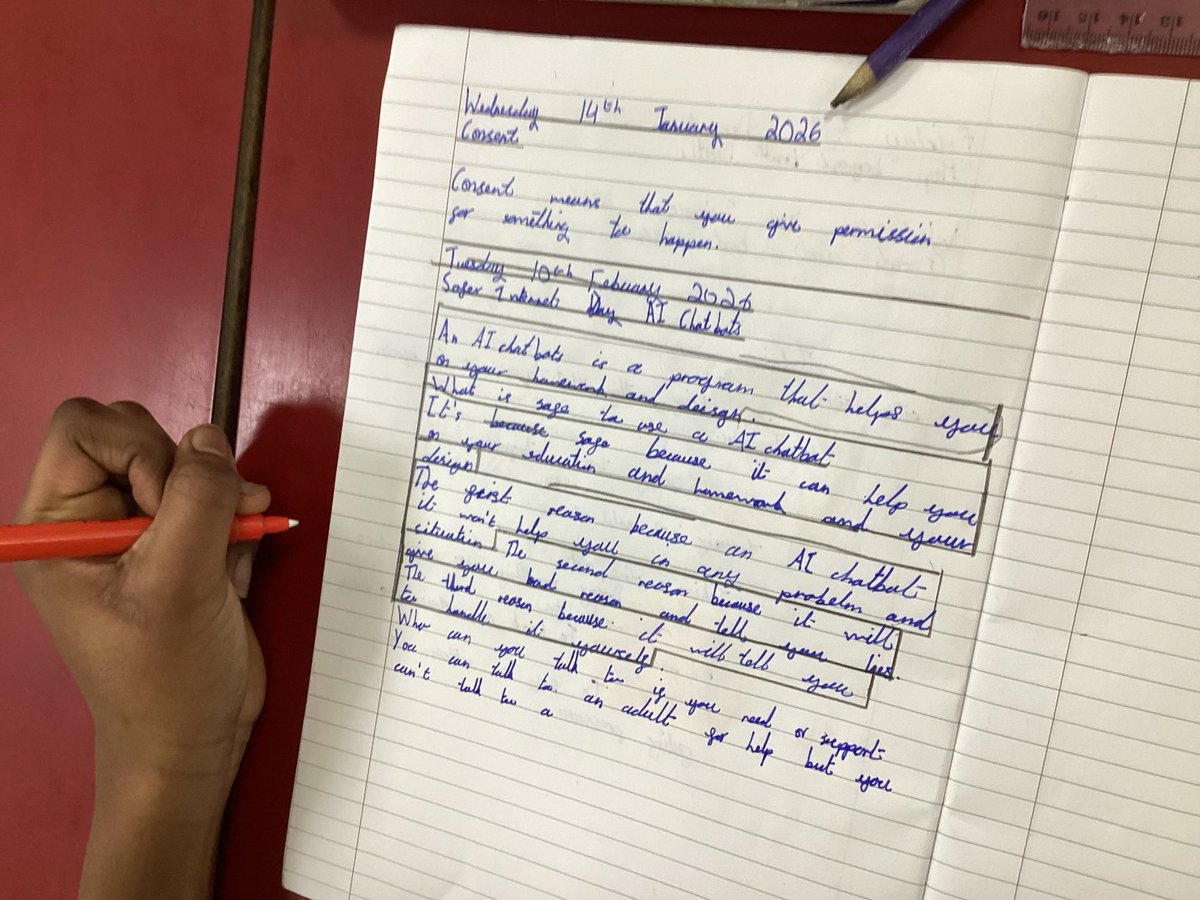 Wednesday 14th January 2026
Consent
Consent means that you give permission
for something to happen.
Tuesday 10th Febuary 2026
Safer Internet Day AI Chatbots
An AI chatbots is a program that helps you
on your homework and deisgn.
What is safe to use a AI chatbat
It's because safe because it can help you
on your education and homework and your
design
The first reason because an AI chatbat
it won't help you in any probelm and
citiuation The second reason because it will
give you bad reason and tell you lies.
The third reason because it will tell you
to handle it yourself.
Who can you talk to if you need or support
You can talk to an adult for help but you
can't talk to a
16 15 14 13